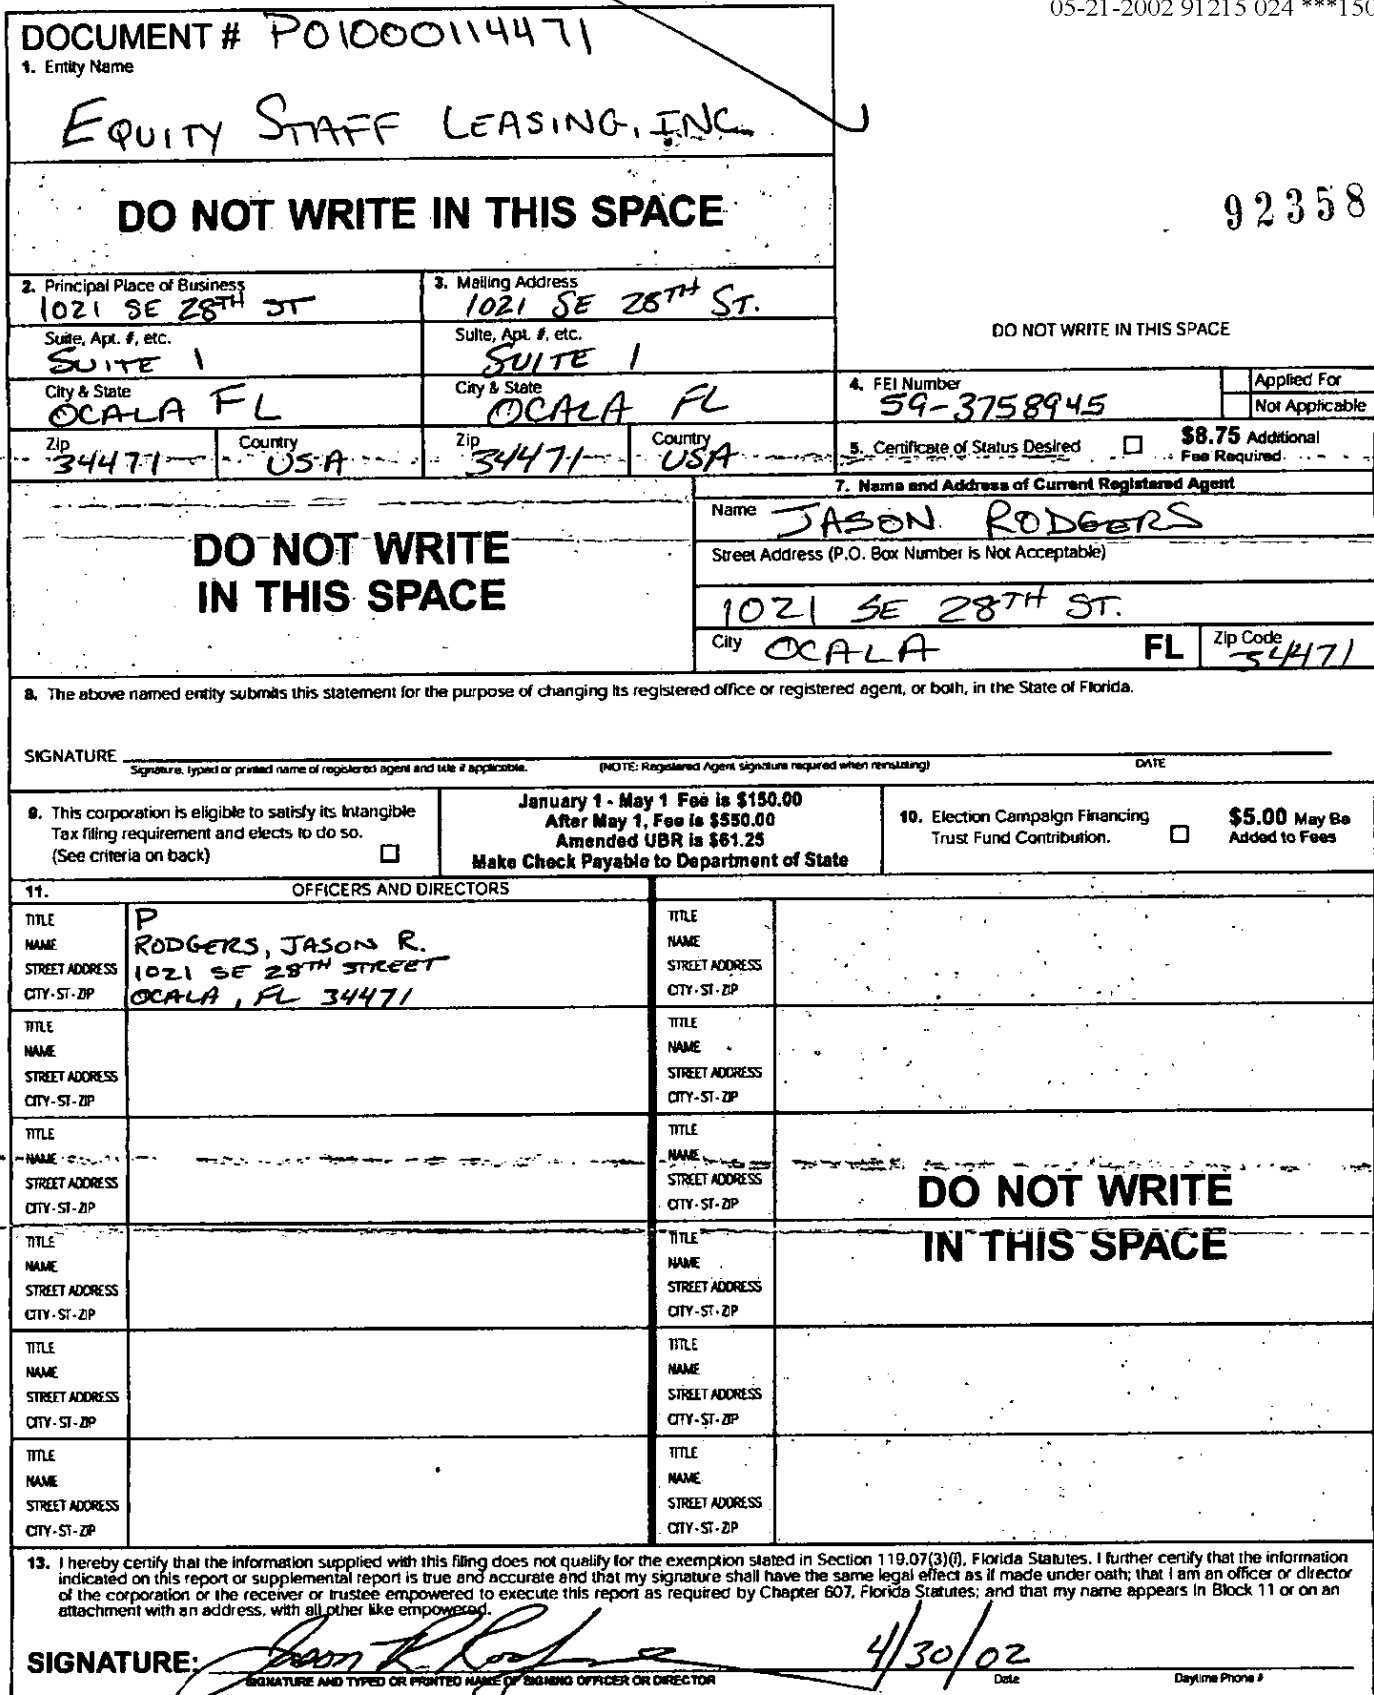 05-21-2002 91215 024 ***150
DOCUMENT # P01000114471
1. Entity Name
EQUITY STAFF LEASING, INC.
DO NOT WRITE IN THIS SPACE
92358
2. Principal Place of Business
1021 SE 28TH ST
3. Mailing Address
1021 SE 28TH ST.
Suite, Apt. #, etc.
SUITE 1
Suite, Apt. #, etc.
SUITE 1
DO NOT WRITE IN THIS SPACE
City & State
OCALA FL
City & State
OCALA FL
4. FEI Number
59-3758945
Applied For
Not Applicable
Zip
34471
Country
USA
Zip
34471
Country
USA
5. Certificate of Status Desired
$8.75 Additional
Fee Required
DO NOT WRITE
IN THIS SPACE
7. Name and Address of Current Registered Agent
Name JASON RODGERS
Street Address (P.O. Box Number is Not Acceptable)
1021 SE 28TH ST.
City OCALA FL Zip Code 34471
8. The above named entity submits this statement for the purpose of changing its registered office or registered agent, or both, in the State of Florida.
SIGNATURE
Signature, typed or printed name of registered agent and title if applicable. (NOTE: Registered Agent signature required when reinstating) DATE
9. This corporation is eligible to satisfy its Intangible
Tax filing requirement and elects to do so.
(See criteria on back)
January 1 - May 1 Fee is $150.00
After May 1, Fee is $550.00
Amended UBR is $61.25
Make Check Payable to Department of State
10. Election Campaign Financing
Trust Fund Contribution.
$5.00 May Be
Added to Fees
11. OFFICERS AND DIRECTORS
TITLE P
NAME RODGERS, JASON R.
STREET ADDRESS 1021 SE 28TH STREET
CITY-ST-ZIP OCALA, FL 34471
TITLE
NAME
STREET ADDRESS
CITY-ST-ZIP
TITLE
NAME
STREET ADDRESS
CITY-ST-ZIP
TITLE
NAME
STREET ADDRESS
CITY-ST-ZIP
TITLE
NAME
STREET ADDRESS
CITY-ST-ZIP
TITLE
NAME
STREET ADDRESS
CITY-ST-ZIP
TITLE
NAME
STREET ADDRESS
CITY-ST-ZIP
TITLE
NAME
STREET ADDRESS
CITY-ST-ZIP
TITLE
NAME
STREET ADDRESS
CITY-ST-ZIP
TITLE
NAME
STREET ADDRESS
CITY-ST-ZIP
TITLE
NAME
STREET ADDRESS
CITY-ST-ZIP
TITLE
NAME
STREET ADDRESS
CITY-ST-ZIP
DO NOT WRITE
IN THIS SPACE
13. I hereby certify that the information supplied with this filing does not qualify for the exemption stated in Section 119.07(3)(i), Florida Statutes. I further certify that the information
indicated on this report or supplemental report is true and accurate and that my signature shall have the same legal effect as if made under oath; that I am an officer or director
of the corporation or the receiver or trustee empowered to execute this report as required by Chapter 607, Florida Statutes; and that my name appears in Block 11 or on an
attachment with an address, with all other like empowered.
SIGNATURE: Jason R. Rodgers 4/30/02
SIGNATURE AND TYPED OR PRINTED NAME OF SIGNING OFFICER OR DIRECTOR Date Daytime Phone #